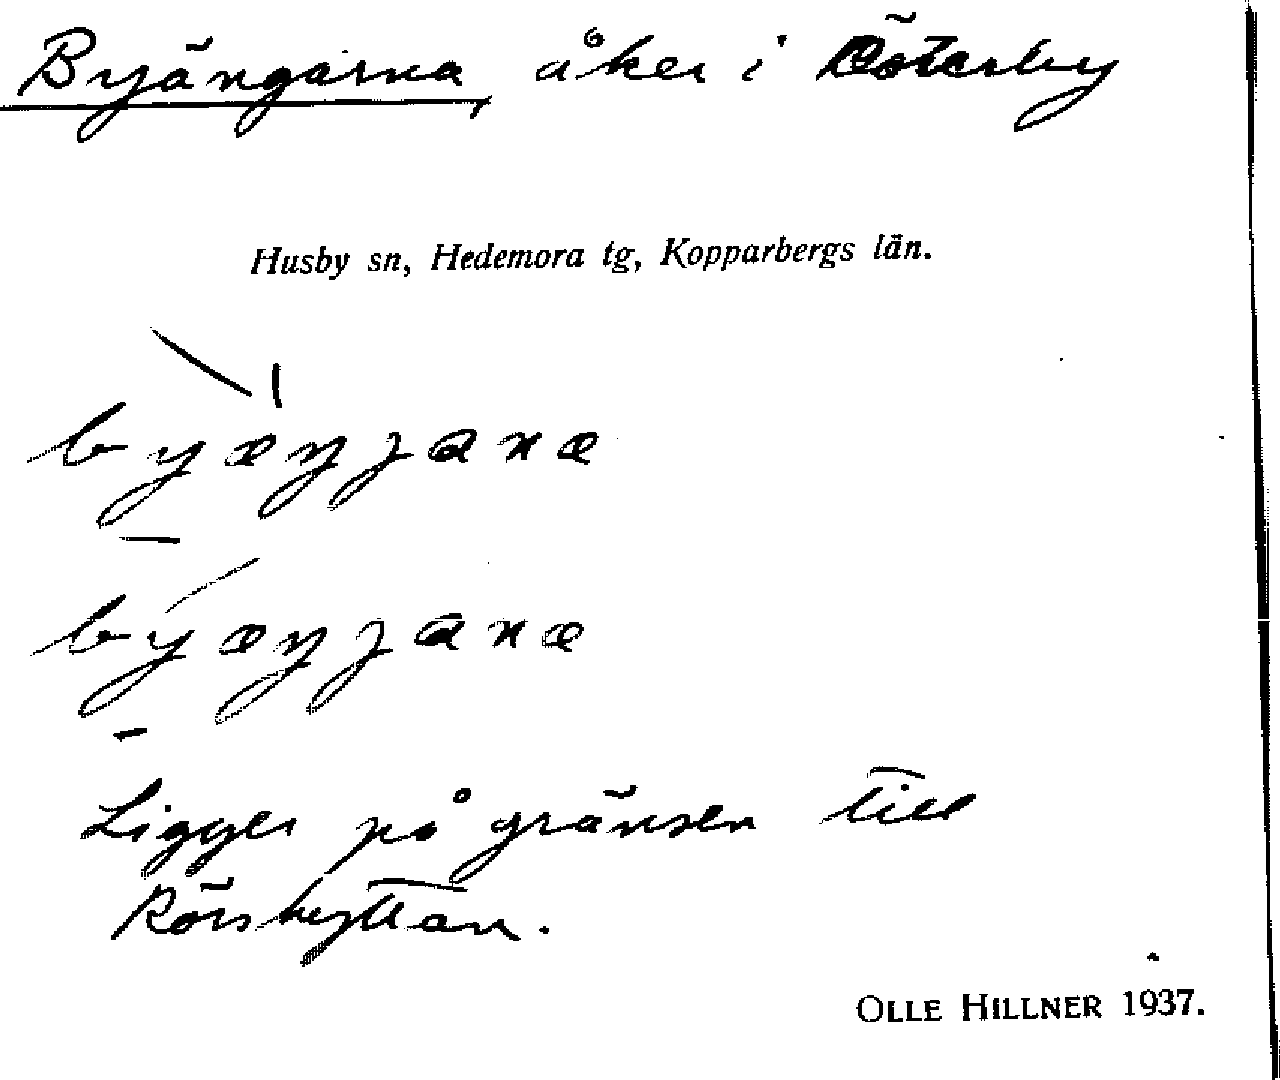 Byängarna, åker i Österby
Husby sn, Hedemora tg, Kopparbergs län.
byæŋjana
býæŋjana
Ligger på gränsen till
Rörshyttan.
OLLE HILLNER 1937.